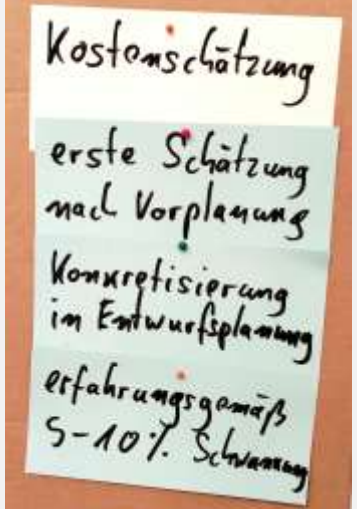 Kostenschätzung
erste Schätzung
nach Vorplanung
Konkretisierung
in Entwurfsplanung
erfahrungsgemäß
5-10% Schwankung